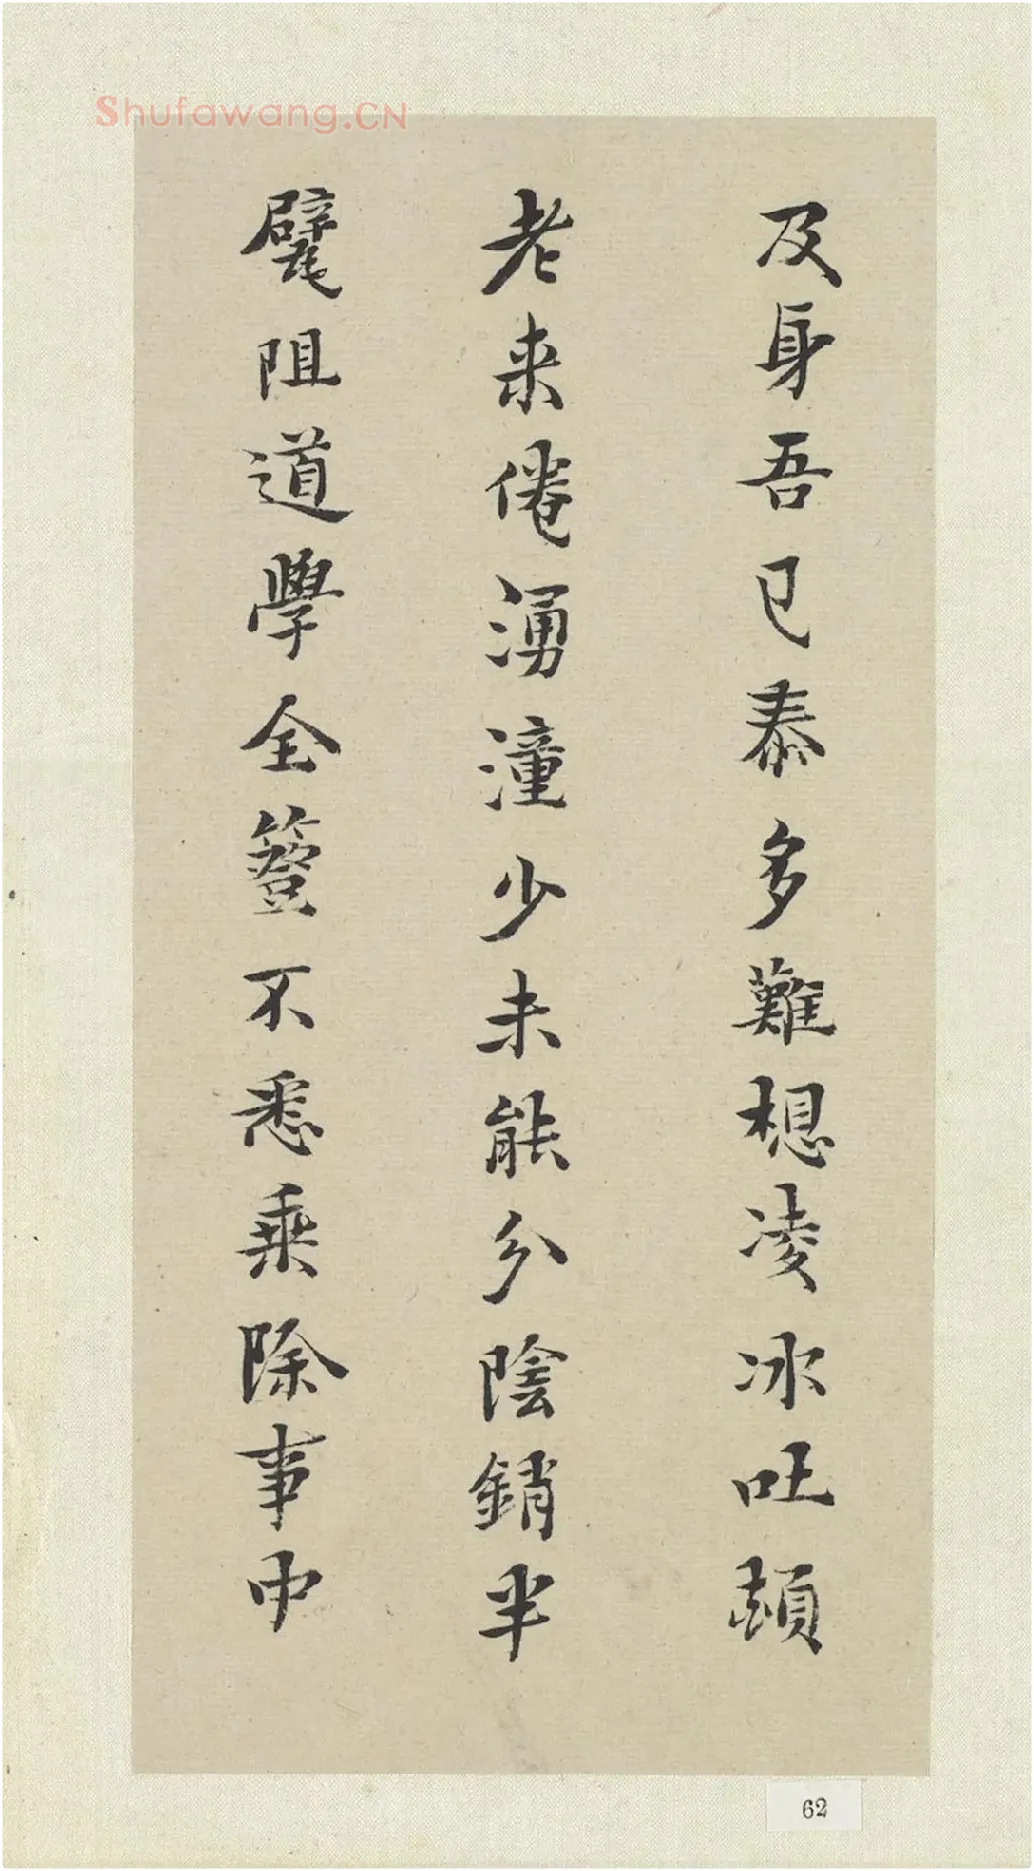 Shufawang.CN
及身吾已泰多難想凌冰吐頡
老来倦涌潼少未能分陰銷半
氂阻道學全簦不悉乘除事中
62